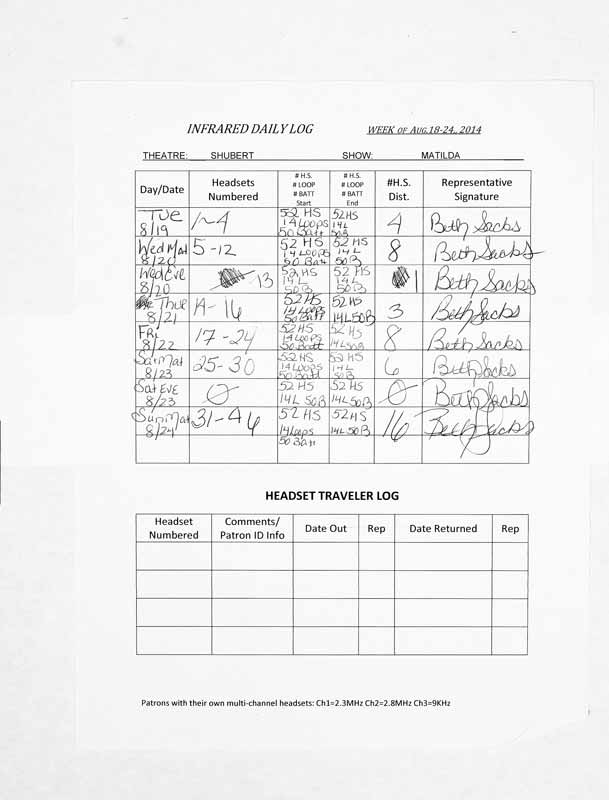 INFRARED DAILY LOG WEEK OF AUG.18-24, 2014
THEATRE: SHUBERT SHOW: MATILDA
Day/Date Headsets Numbered # H.S. # LOOP # BATT Start # H.S. # LOOP # BATT End #H.S. Dist. Representative Signature
Tue 8/19 1-4 52 HS 14 Loops 50 Batt 52 HS 14 L 50 B 4 Beth Sacks
Wed Mat 8/20 5-12 52 HS 14 Loops 50 Batt 52 HS 14 L 50 B 8 Beth Sacks
Wed Eve 8/20 13 52 HS 14 L 50 B 52 HS 14 L 50 B 1 Beth Sacks
Thue 8/21 14-16 52 HS 14 Loops 50 Batt 52 HS 14L 50B 3 Beth Sacks
Fri 8/22 17-24 52 HS 14 Loops 50 Batt 52 HS 14L 50B 8 Beth Sacks
Sat Mat 8/23 25-30 52 HS 14 Loops 50 Batt 52 HS 14 L 50 B 6 Beth Sacks
Sat Eve 8/23 Ø 52 HS 14L 50B 52 HS 14L 50B Ø Beth Sacks
Sun Mat 8/24 31-46 52 HS 14 Loops 50 Batt 52 HS 14L 50B 16 Beth Sacks
HEADSET TRAVELER LOG
Headset Numbered Comments/ Patron ID Info Date Out Rep Date Returned Rep
Patrons with their own multi-channel headsets: Ch1=2.3MHz Ch2=2.8MHz Ch3=9KHz